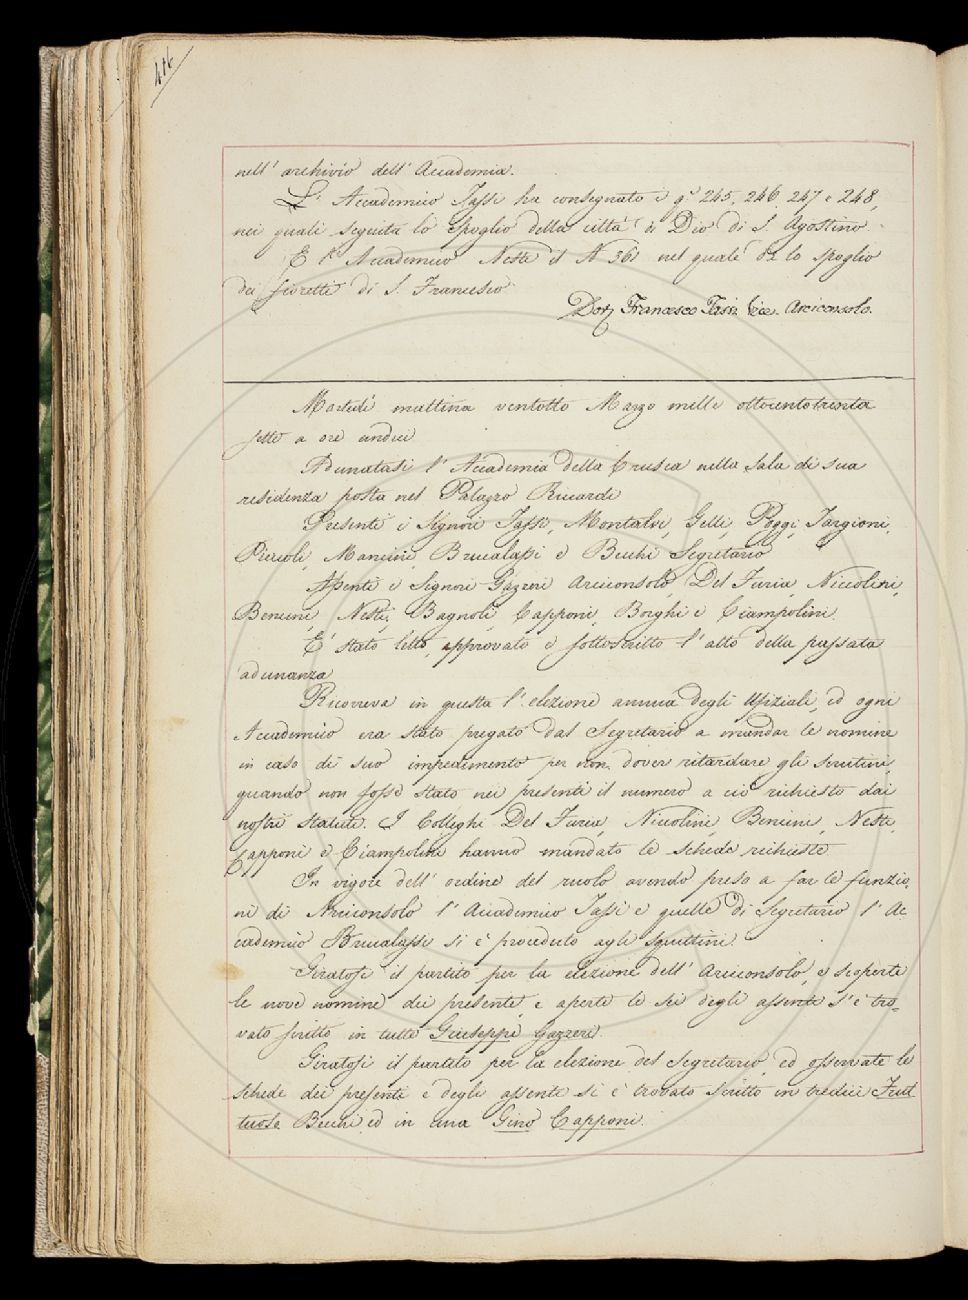 416
nell' archivio dell' Accademia.
L' Accademico Tassi ha consegnato i qi 245, 246, 247 e 248,
nei quali seguita lo spoglio della città di Dio di S. Agostino.
E l' Accademico Nesti il N 361 nel quale dà lo spoglio
dei fioretti di S. Francesco.
Dott. Francesco Tassi Vice-Arciconsolo.
Martedì mattina ventotto Marzo mille ottocentotrenta
sette a ore undici
Adunatasi l' Accademia della Crusca nella Sala di sua
residenza posta nel Palazzo Riccardi
Presenti i Signori Tassi, Montalvi, Gelli, Poggi, Targioni,
Piccioli, Mancini, Brucalassi e Becchi Segretario
Assenti i Signori Gazzeri Arciconsolo, Del Furia, Niccolini,
Bencini, Nesti, Bagnoli, Capponi, Borghi e Ciampolini.
E' stato letto, approvato e sottoscritto l' atto della passata
adunanza
Ricorreva in questa l' elezione annua degli Ufiziali, ed ogni
Accademico era stato pregato dal Segretario a mandar le nomine
in caso di suo impedimento per non dover ritardare gli scrutini,
quando non fosse stato nei presenti il numero a ciò richiesto dai
nostri statuti. I Colleghi Del Furia, Niccolini, Bencini, Nesti,
Capponi e Ciampolini hanno mandato le schede richieste.
In vigore dell' ordine del ruolo avendo preso a far le funzio
ni di Arciconsolo l' Accademico Tassi e quelle di Segretario l' Ac
cademico Brucalassi si è proceduto agli squittini.
Giratosi il partito per la elezione dell' Arciconsolo, e scoperte
le nove nomine dei presenti, e aperte le sei degli assenti s' è tro-
vato scritto in tutte Giuseppe Gazzeri.
Giratosi il partito per la elezione del Segretario, ed osservate le
schede dei presenti e degli assenti si è trovato scritto in tredici Frut
tuoso Becchi ed in una Gino Capponi.